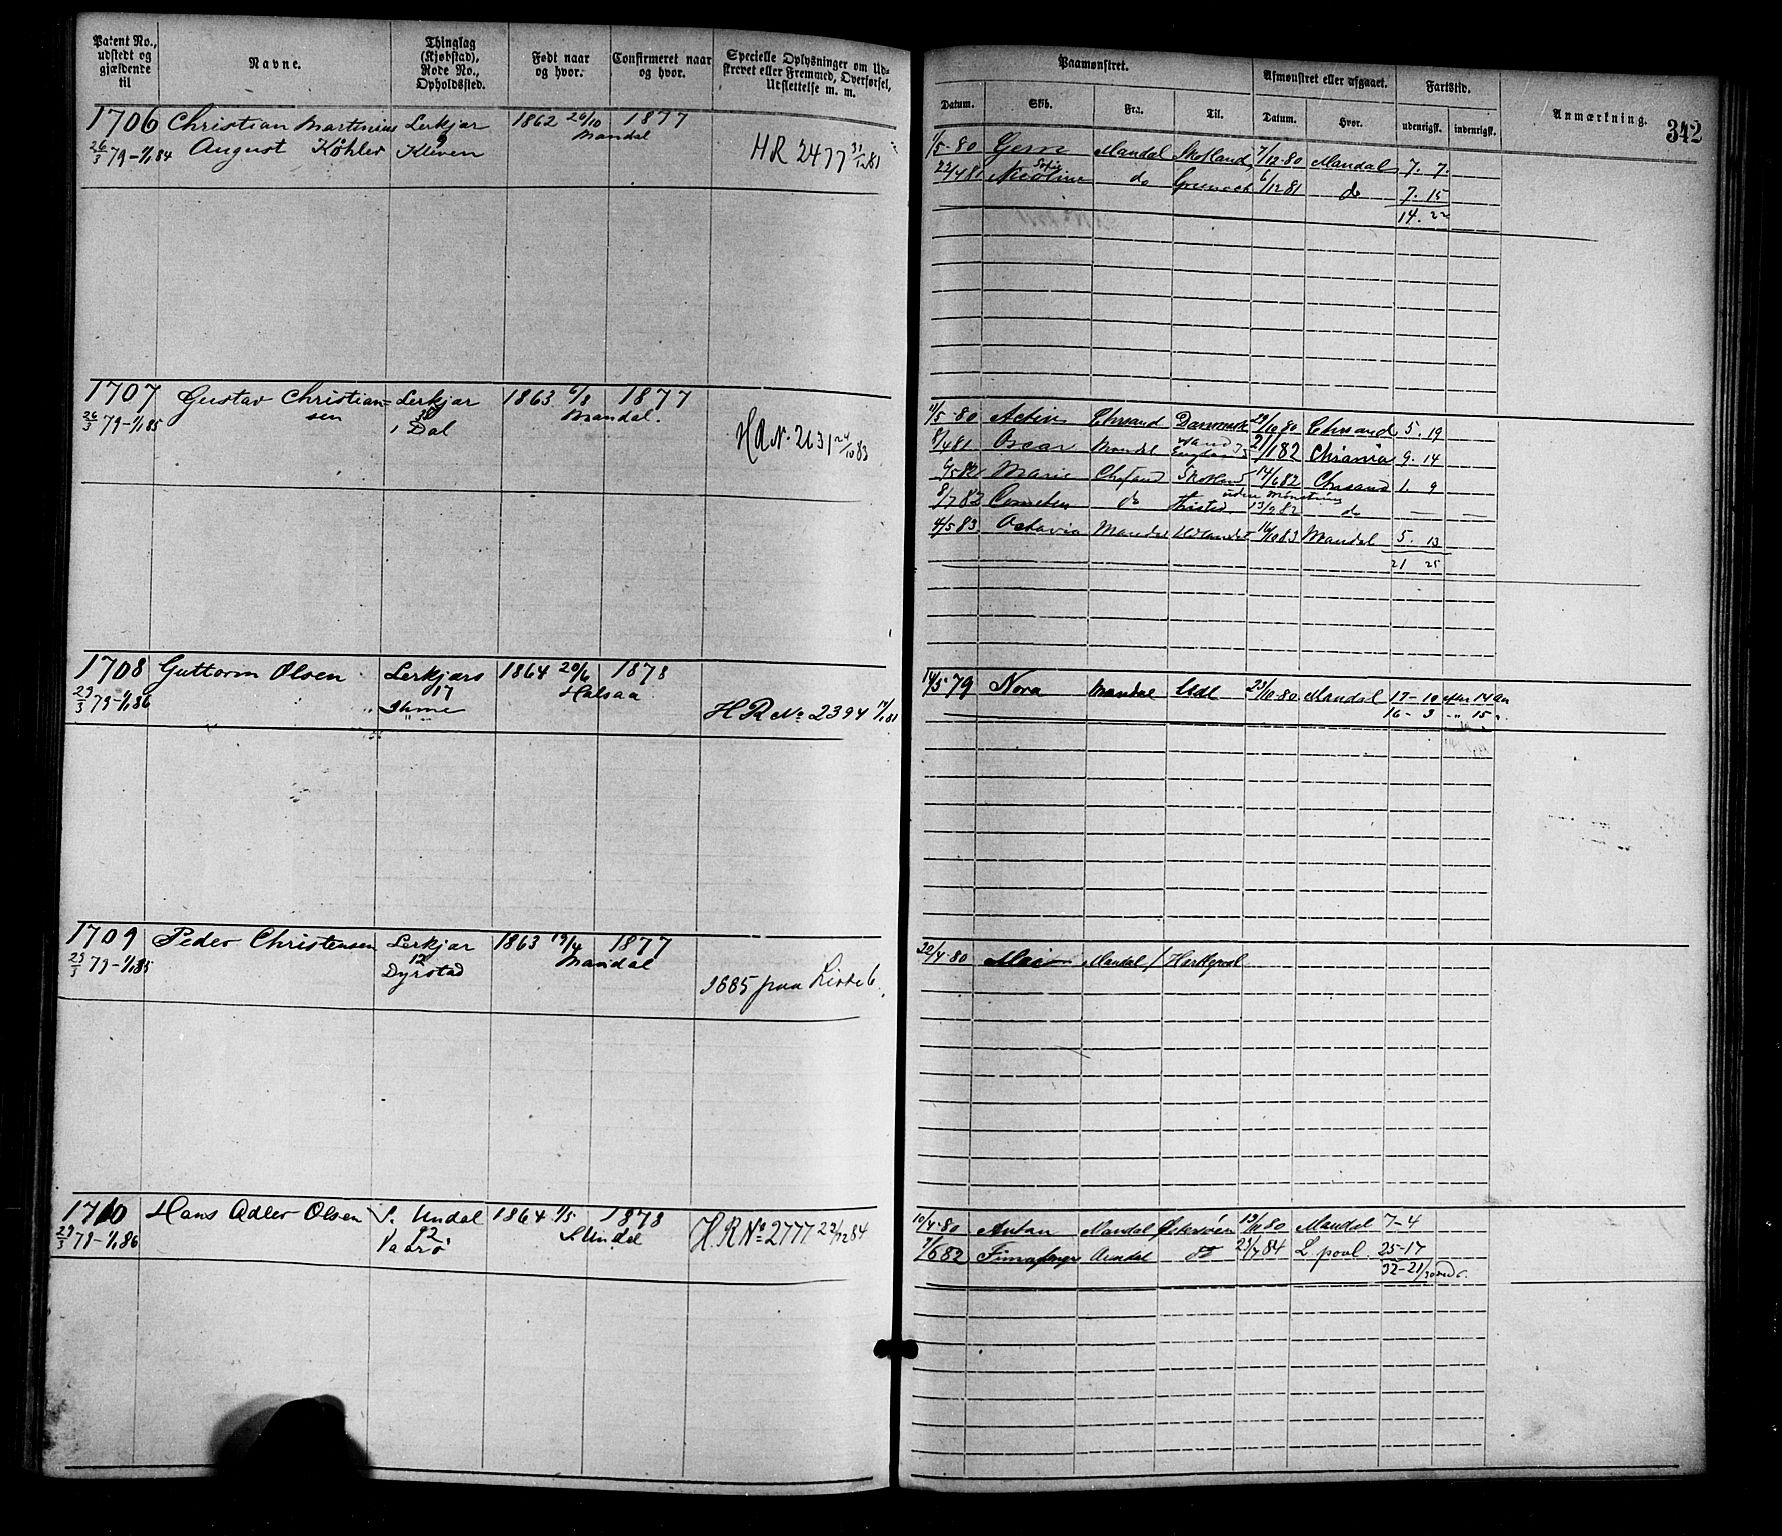 Patent No., udstedt og gjældende til
Navne.
Thinglag (Kjøbstad), Rode No., Opholdssted.
Født naar og hvor.
Confirmeret naar og hvor.
Specielle Oplysninger om Udskrevet eller Fremmed, Overførsel, Udslettelse m. m.
Paamønstret.
Datum.
Skib.
Fra.
Til.
Afmønstret eller afgaaet.
Datum.
Hvor.
Fartstid.
udenrigsk.
indenrigsk.
Anmærkning.
342
1706 Christian Martinius Lerkjær 1862 26/10 1877
26/3 79-1/1 84 August Köhler 9 Kleven Mandal HR 2477 31/12 81
1/5-80 Mandal Skotland 7/12-80 Mandal 7. 7.
22/4 81 Sofie Nicoline do 6/12 81 do 7. 15
14. 22
1707 Gustav Christian= Lerkjær 1863 6/8 1877
26/3 79-1/1 85 sen Dal Mandal. 2631 24/10 83
11/5-80 Activ Chrsand Danmark 29/10 80 Chrsand 5. 19
8/4 81 Oscar Mandal England 21/1 82 Chrania 9. 14
Marie Skotland 14/6 82 Chrsand 1. 9
8/7 82 Cometen do Thisted uden Mønstring 13/9 82 do — —
4/5 83 Octavia Mandal Udlandet 16/10 83 Mandal 5. 13
21 25
1708 Guttorm Olsen Lerkjær 1864 20/6 1878
29/3 79-1/1 86 17 Ihme Halsaa HR No 2394
14/5 79 Nora Mandal Udl 23/10-80 Mandal 17-10 efter 14 Aar
16-3 -"- 15 "
1709 Peder Christensen Lerkjær 1863 19/4 1877
29/3 79-1/1 85 12 Dyrstad Mandal
1685 paa Liste 6.
22/4-80 Mandal / Hartlepool
1710 Hans Adler Olsen S. Undal 1864 9/5 1878
29/3 79-1/1 86 92 Vaarø S. Undal H.R No 2777 22/12 84
10/4-80 Mandal 13/10 80 Mandal 7-4
7/6 82 Arendal do 23/7 84 L pool 25-17
32-21